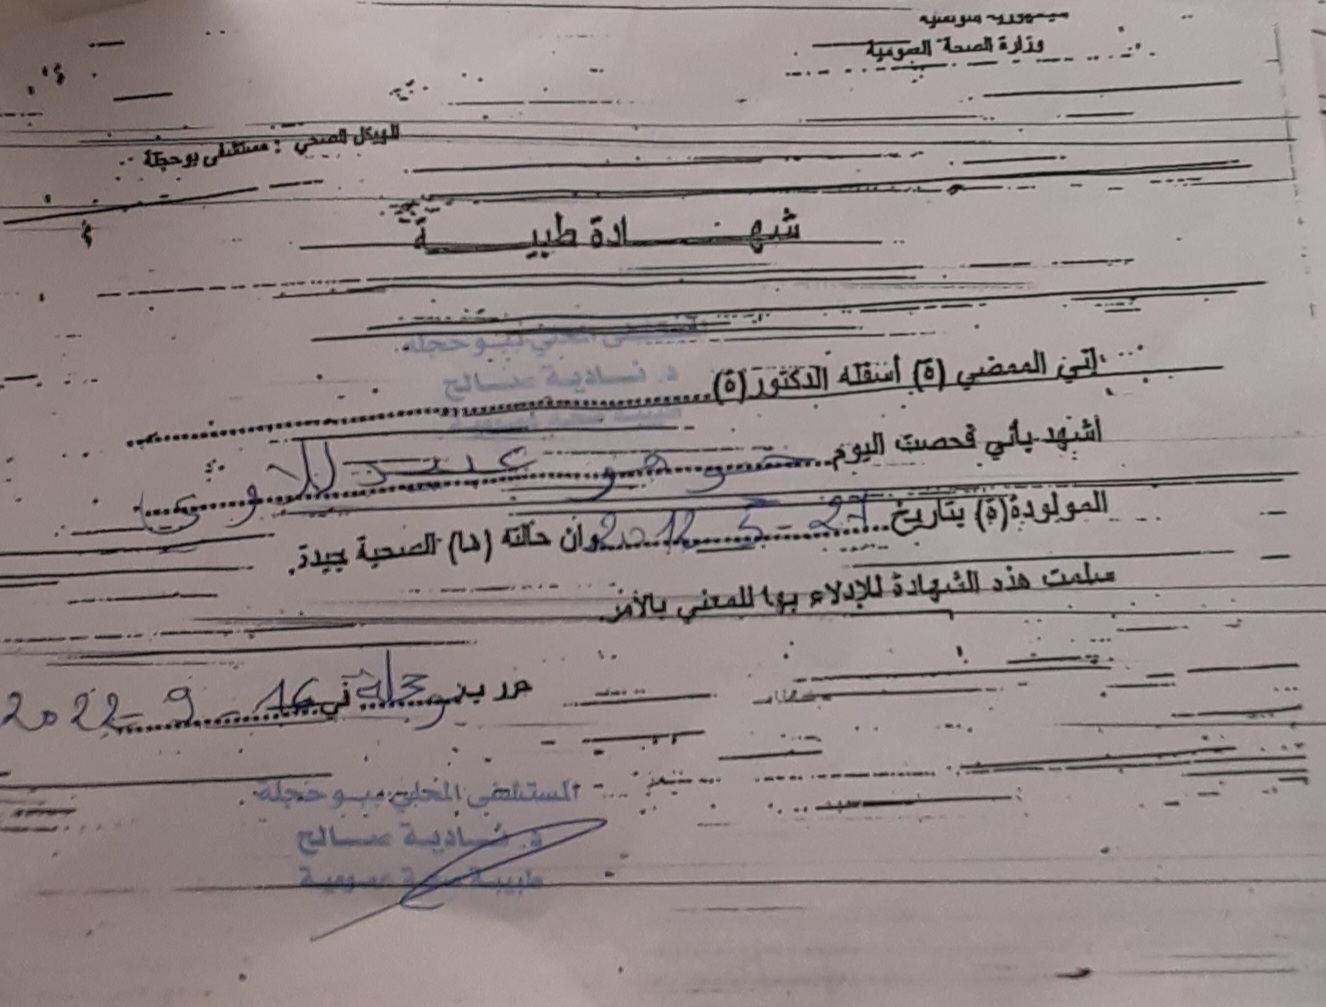 وزارة الصحة العمومية
الهيكل الصحي : مستشفى بوحجلة
شهــــــادة طبيــــــة
المستشفى المحلي ببوحجلة
د. نادية صالح
إنني الممضي (ة) أسفله الدكتور (ة)
أشهد بأني فحصت اليوم
المولودة(ة) بتاريخ 27 - 5 - 2012 وان حالته (ها) الصحية جيدة.
سلمت هذه الشهادة للإدلاء بها للمعني بالأمر.
حرر ببوحجلة في 16 - 9 - 2022
المستشفى المحلي ببوحجلة
د. نادية صالح
طبيبة صحة عمومية